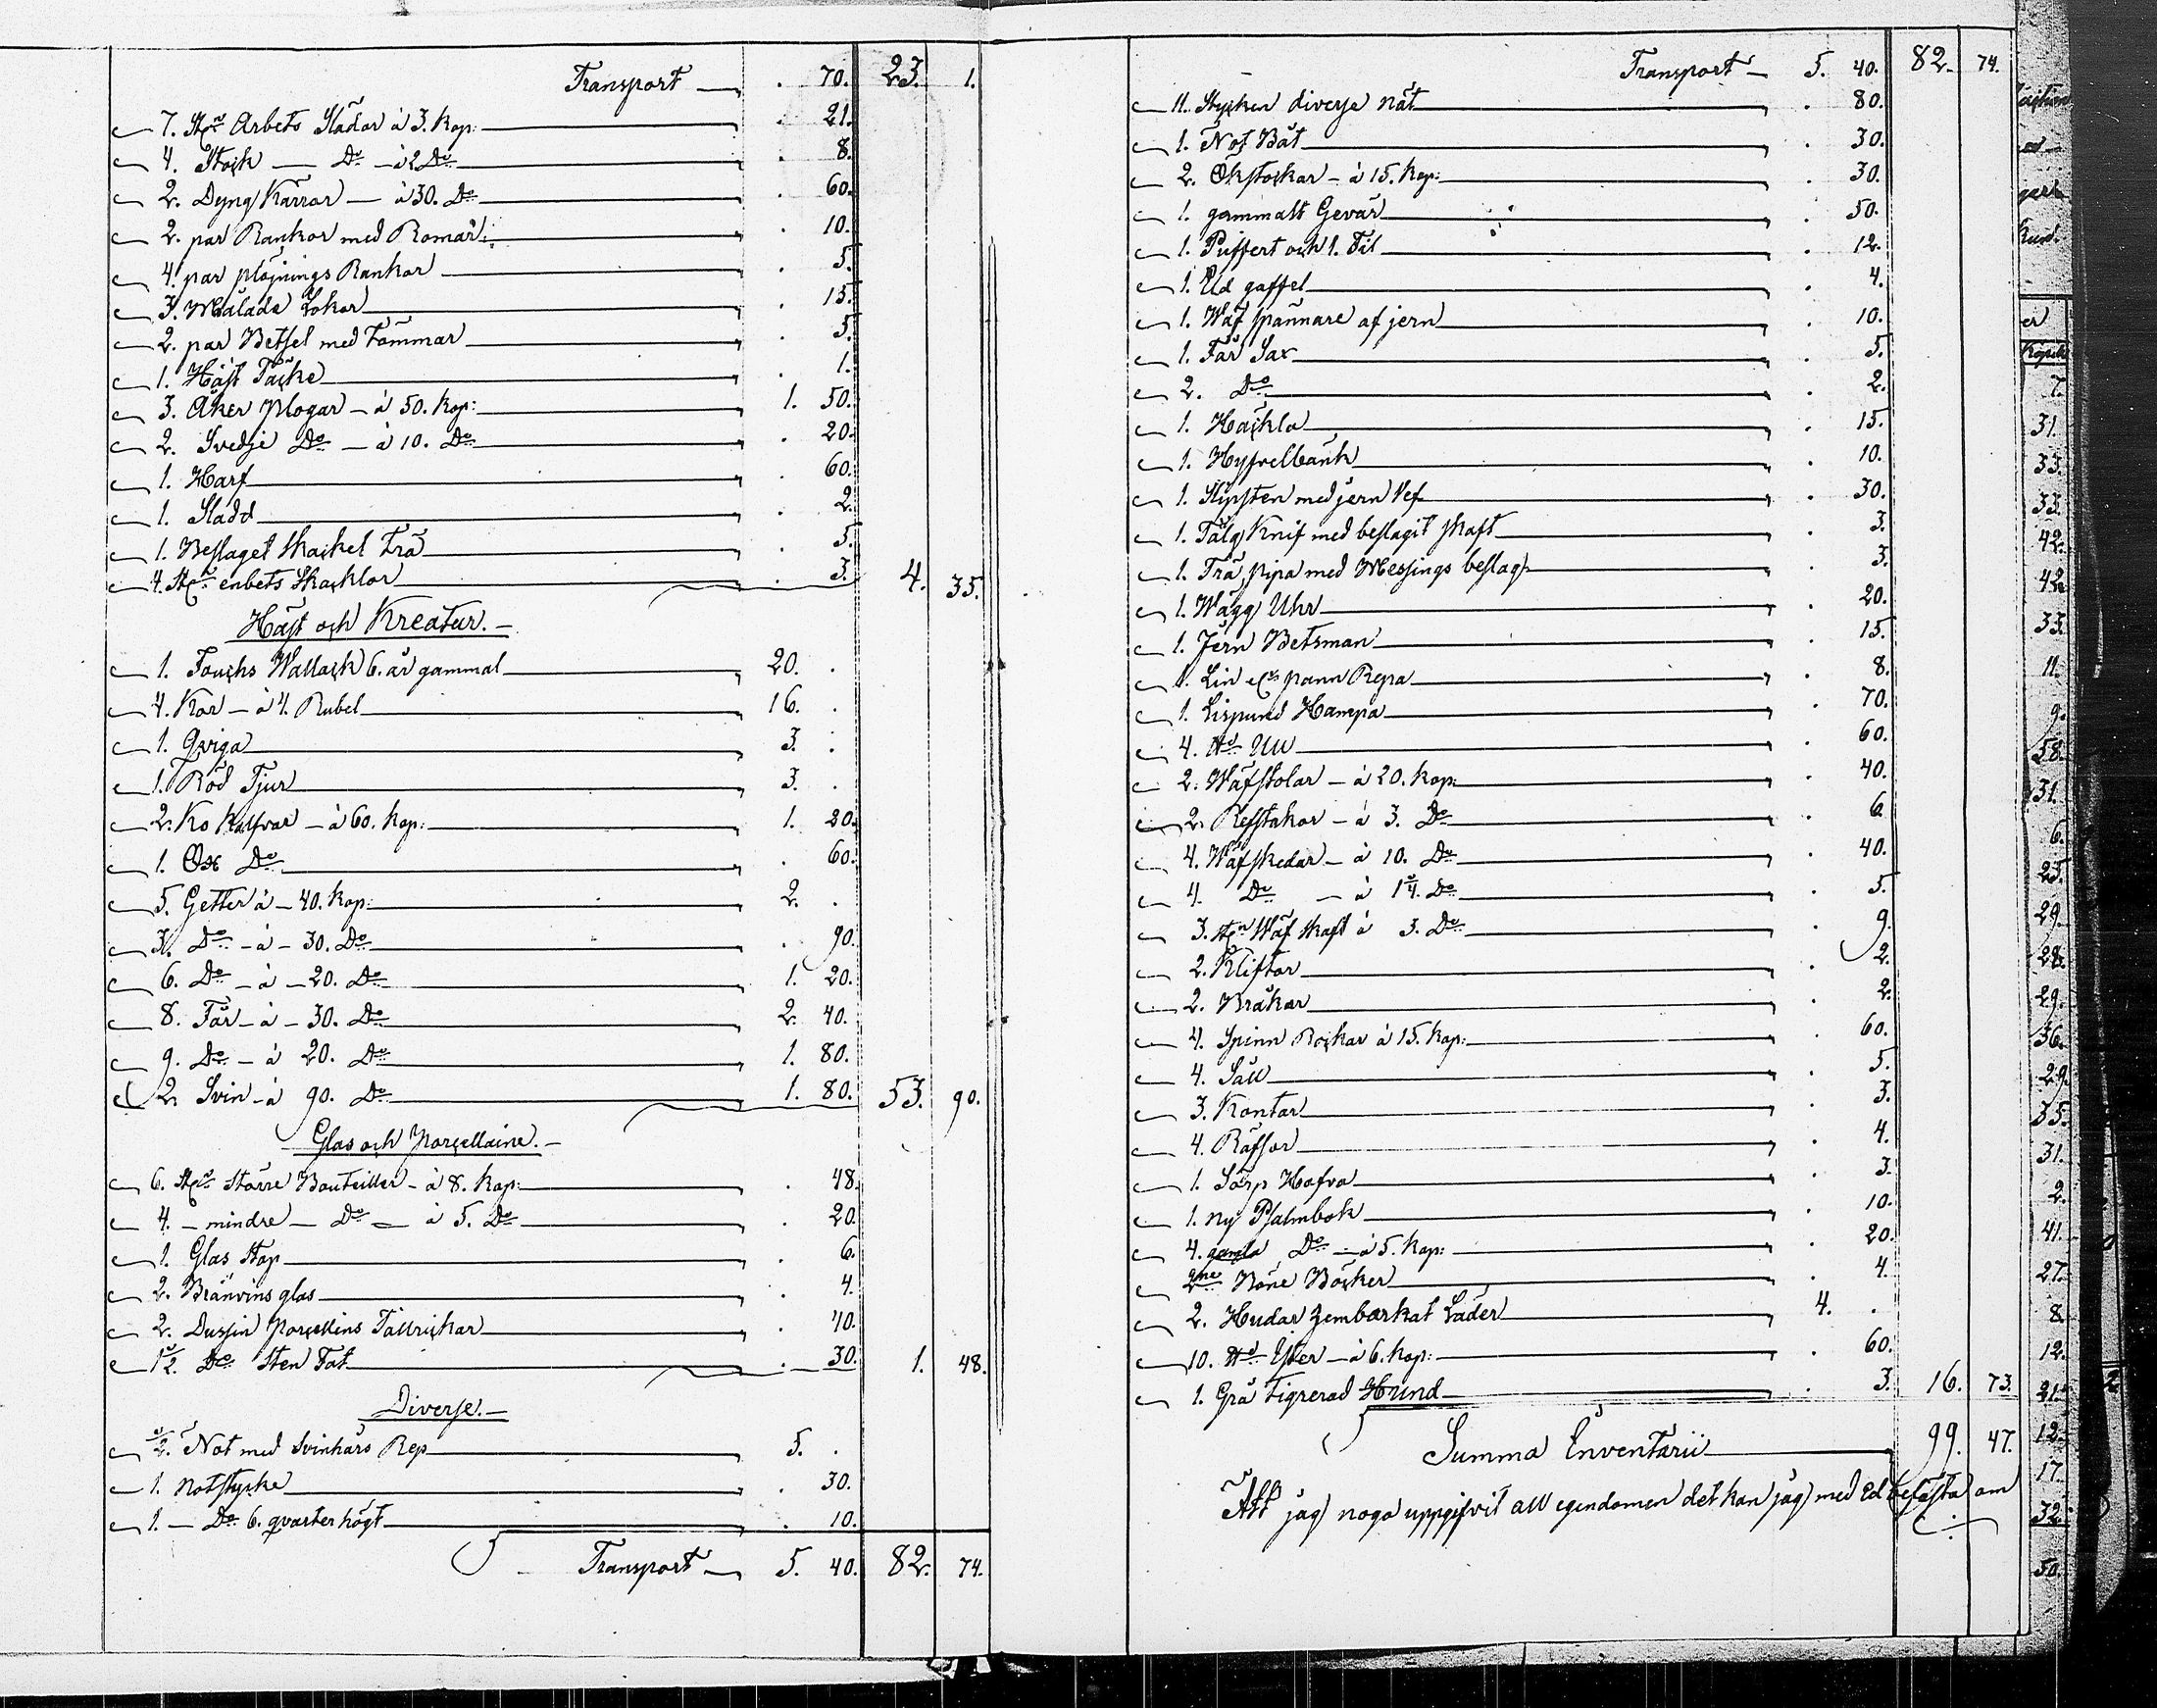 Transport — . 70. 23. 1.
7. St:n Arbets Slädar à 3. kop: . 21.
4. Stock — Do — à 2 Do . 8.
2. Dyng Kärror — à 30. Do . 60.
2. par Rankor med Romar: . 10.
4. par plöjnings Rankor . 5.
3. Målade Lokor . 15.
2. par Betsel med Tömmar . 5.
1. Häst Täcke . 1.
3. Åker plogar — à 50. kop: 1. 50.
2. Svedje Do — à 10. Do . 20.
1. Harf . 60.
1. Sladd . 2.
1. Beslaget Skackel Trä . 5.
4. St:n enbets Skacklor . 3. 4. 35.
Häst och Kreatur. —
1. Fouchs Wallack 6. år gammal 20. .
4. Kor — à 4. Rubel 16. .
1. Qviga 3. .
1. Röd Tjur 3. .
2. Ko Kalfvar — à 60. kop: 1. 20.
1. Ox Do . 60.
5. Getter à — 40. kop: 2. .
3. Do — à — 30. Do . 90.
6. Do — à — 20. Do 1. 20.
8. Får — à — 30. Do 2. 40.
9. Do — à 20. Do 1. 80.
2. Svin — à 90. Do 1. 80. 53. 90.
Glas och Porcellaine. —
6. St:n större Bouteiller — à 8. kop: . 48.
4. — mindre — Do — à 5. Do . 20.
1. Glas Stop . 6.
2. Bränvins glas . 4.
2. Dussin Porcellins Tallrickar . 40.
1/2. Do Sten Fat . 30. 1. 48.
Diverse. —
1/2. Not med Svinhårs Rep 5. .
1. notstycke . 30.
1. — Do 6. qvarter högt . 10.
Transport — 5. 40. 82. 74.
Transport — 5. 40. 82. 74.
11. Stycken diverse nät . 80.
1. Not Båt . 30.
2. Ökstockar — à 15. kop: . 30.
1. gammalt Gevär . 50.
1. Puffert och 1. Fil . 12.
1. Eld gaffel . 4.
1. Wäf spännare af jern . 10.
1. Får Sax . 5.
2. Do . 2.
1. Häckla . 15.
1. Hyfvelbänk . 10.
1. Slipsten med jern Vef . 30.
1. Tälg Knif med beslagit skaft . 3.
1. Trä pipa med Messings beslag . 3.
1. Wägg Uhr . 20.
1. Jern Betsman . 15.
1. Lin pann Repa . 8.
1. Lispund Hampa . 70.
4. ℔ Ull . 60.
2. Wäfstolar — à 20. kop: . 40.
2. Refstakor — à 3. Do . 6.
4. Wäfskedar — à 10. Do . 40.
4. Do — à 1 1/4. Do . 5.
3. St:n Wäf skaft à 3. Do . 9.
2. Kliftor . 2.
2. Bråkar . 2.
4. Spinn Rockar à 15. kop: . 60.
4. Såll . 5.
3. Kontar . 3.
4. Räfsor . 4.
1. Sörp Hofva . 3.
1. ny Psalmbok . 10.
4. gamla Do — à 5. kop: . 20.
2ne Böne Böcker . 4.
2. Hudar Zembarkat Läder 4. .
10. ℔ Ister — à 6. kop: . 60.
1. Grå Tigrerad Hund . 3. 16. 73.
Summa Inventarii 99. 47.
Att jag noga uppgifvit all egendomen det kan jag med Ed befästa om